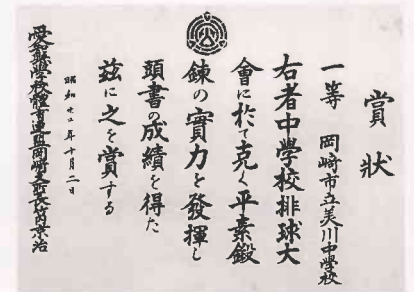 賞狀
一等　岡崎市立美川中學校
右者中學校排球大
會に於て克く平素鍛
錬の實力を發揮し
頭書の成績を得た
茲に之を賞する
昭和廿二年十月二日
愛知縣學校體育連盟岡崎支部長竹内京治